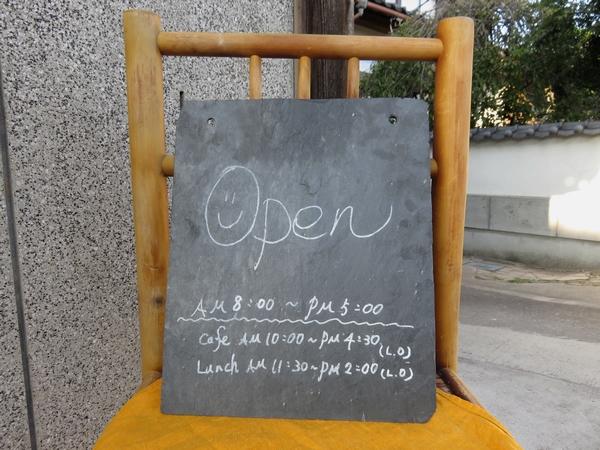 Open
AM 8:00 ~ PM 5:00
Cafe AM 10:00 ~ PM 4:30 (L.O)
Lunch AM 11:30 ~ PM 2:00 (L.O)